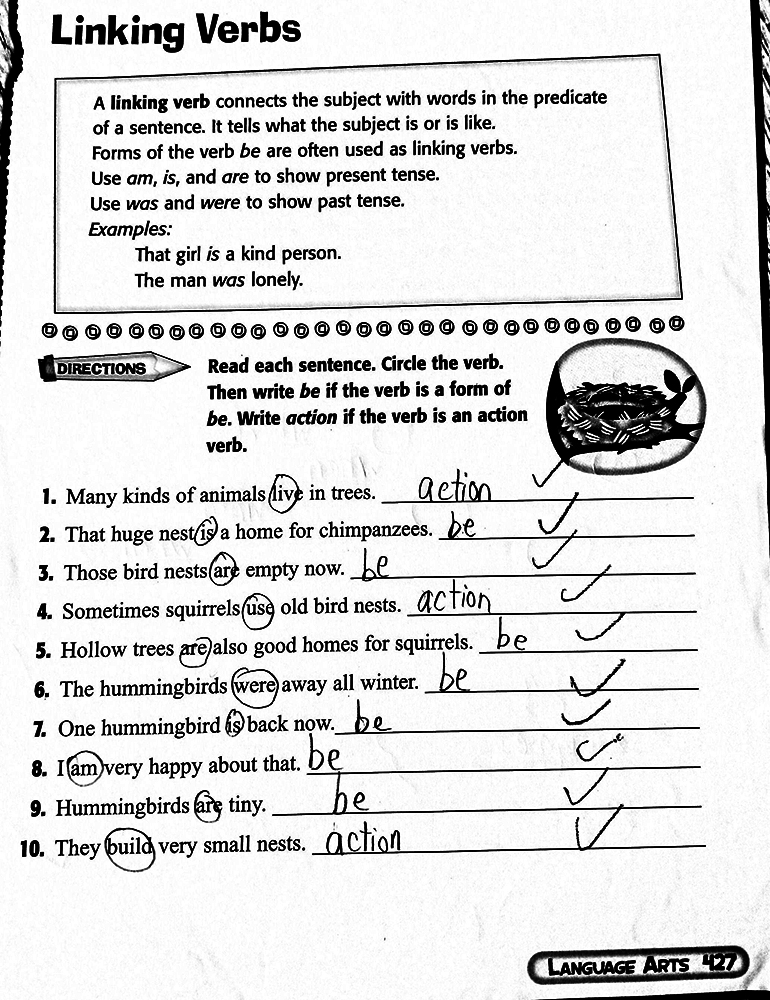 Linking Verbs
A linking verb connects the subject with words in the predicate
of a sentence. It tells what the subject is or is like.
Forms of the verb be are often used as linking verbs.
Use am, is, and are to show present tense.
Use was and were to show past tense.
Examples:
That girl is a kind person.
The man was lonely.
DIRECTIONS
Read each sentence. Circle the verb.
Then write be if the verb is a form of
be. Write action if the verb is an action
verb.
1. Many kinds of animals live in trees. action
2. That huge nest is a home for chimpanzees. be
3. Those bird nests are empty now. be
4. Sometimes squirrels use old bird nests. action
5. Hollow trees are also good homes for squirrels. be
6. The hummingbirds were away all winter. be
7. One hummingbird is back now. be
8. I am very happy about that. be
9. Hummingbirds are tiny. be
10. They build very small nests. action
LANGUAGE ARTS 427